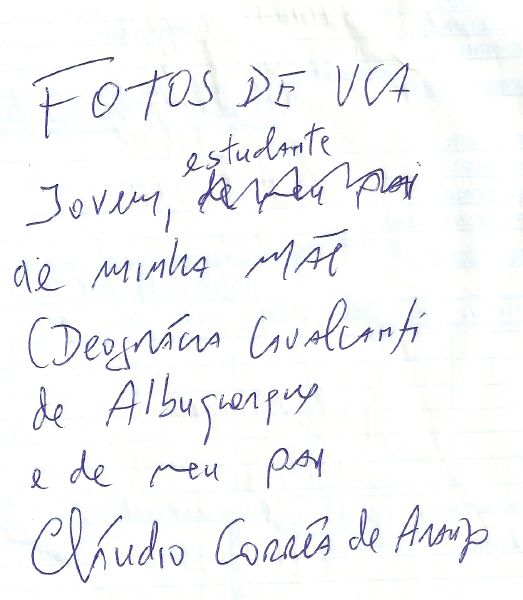 FOTOS DE VCA
estudante
Jovem, de meu pai
de minha MÃE
(Deográcia Cavalcanti
de Albuquerque
e de meu pai
Cláudio Corrêa de Araujo